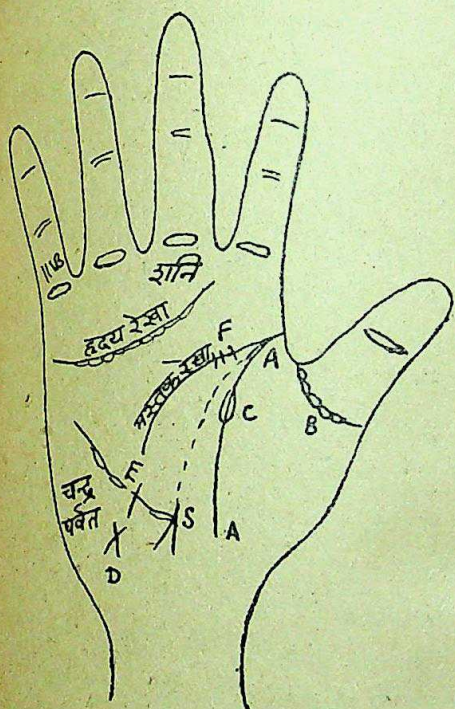 शनि
हृदय रेखा
मस्तक रेखा
F
A
C
B
E
चन्द्र
पर्वत
S
A
D